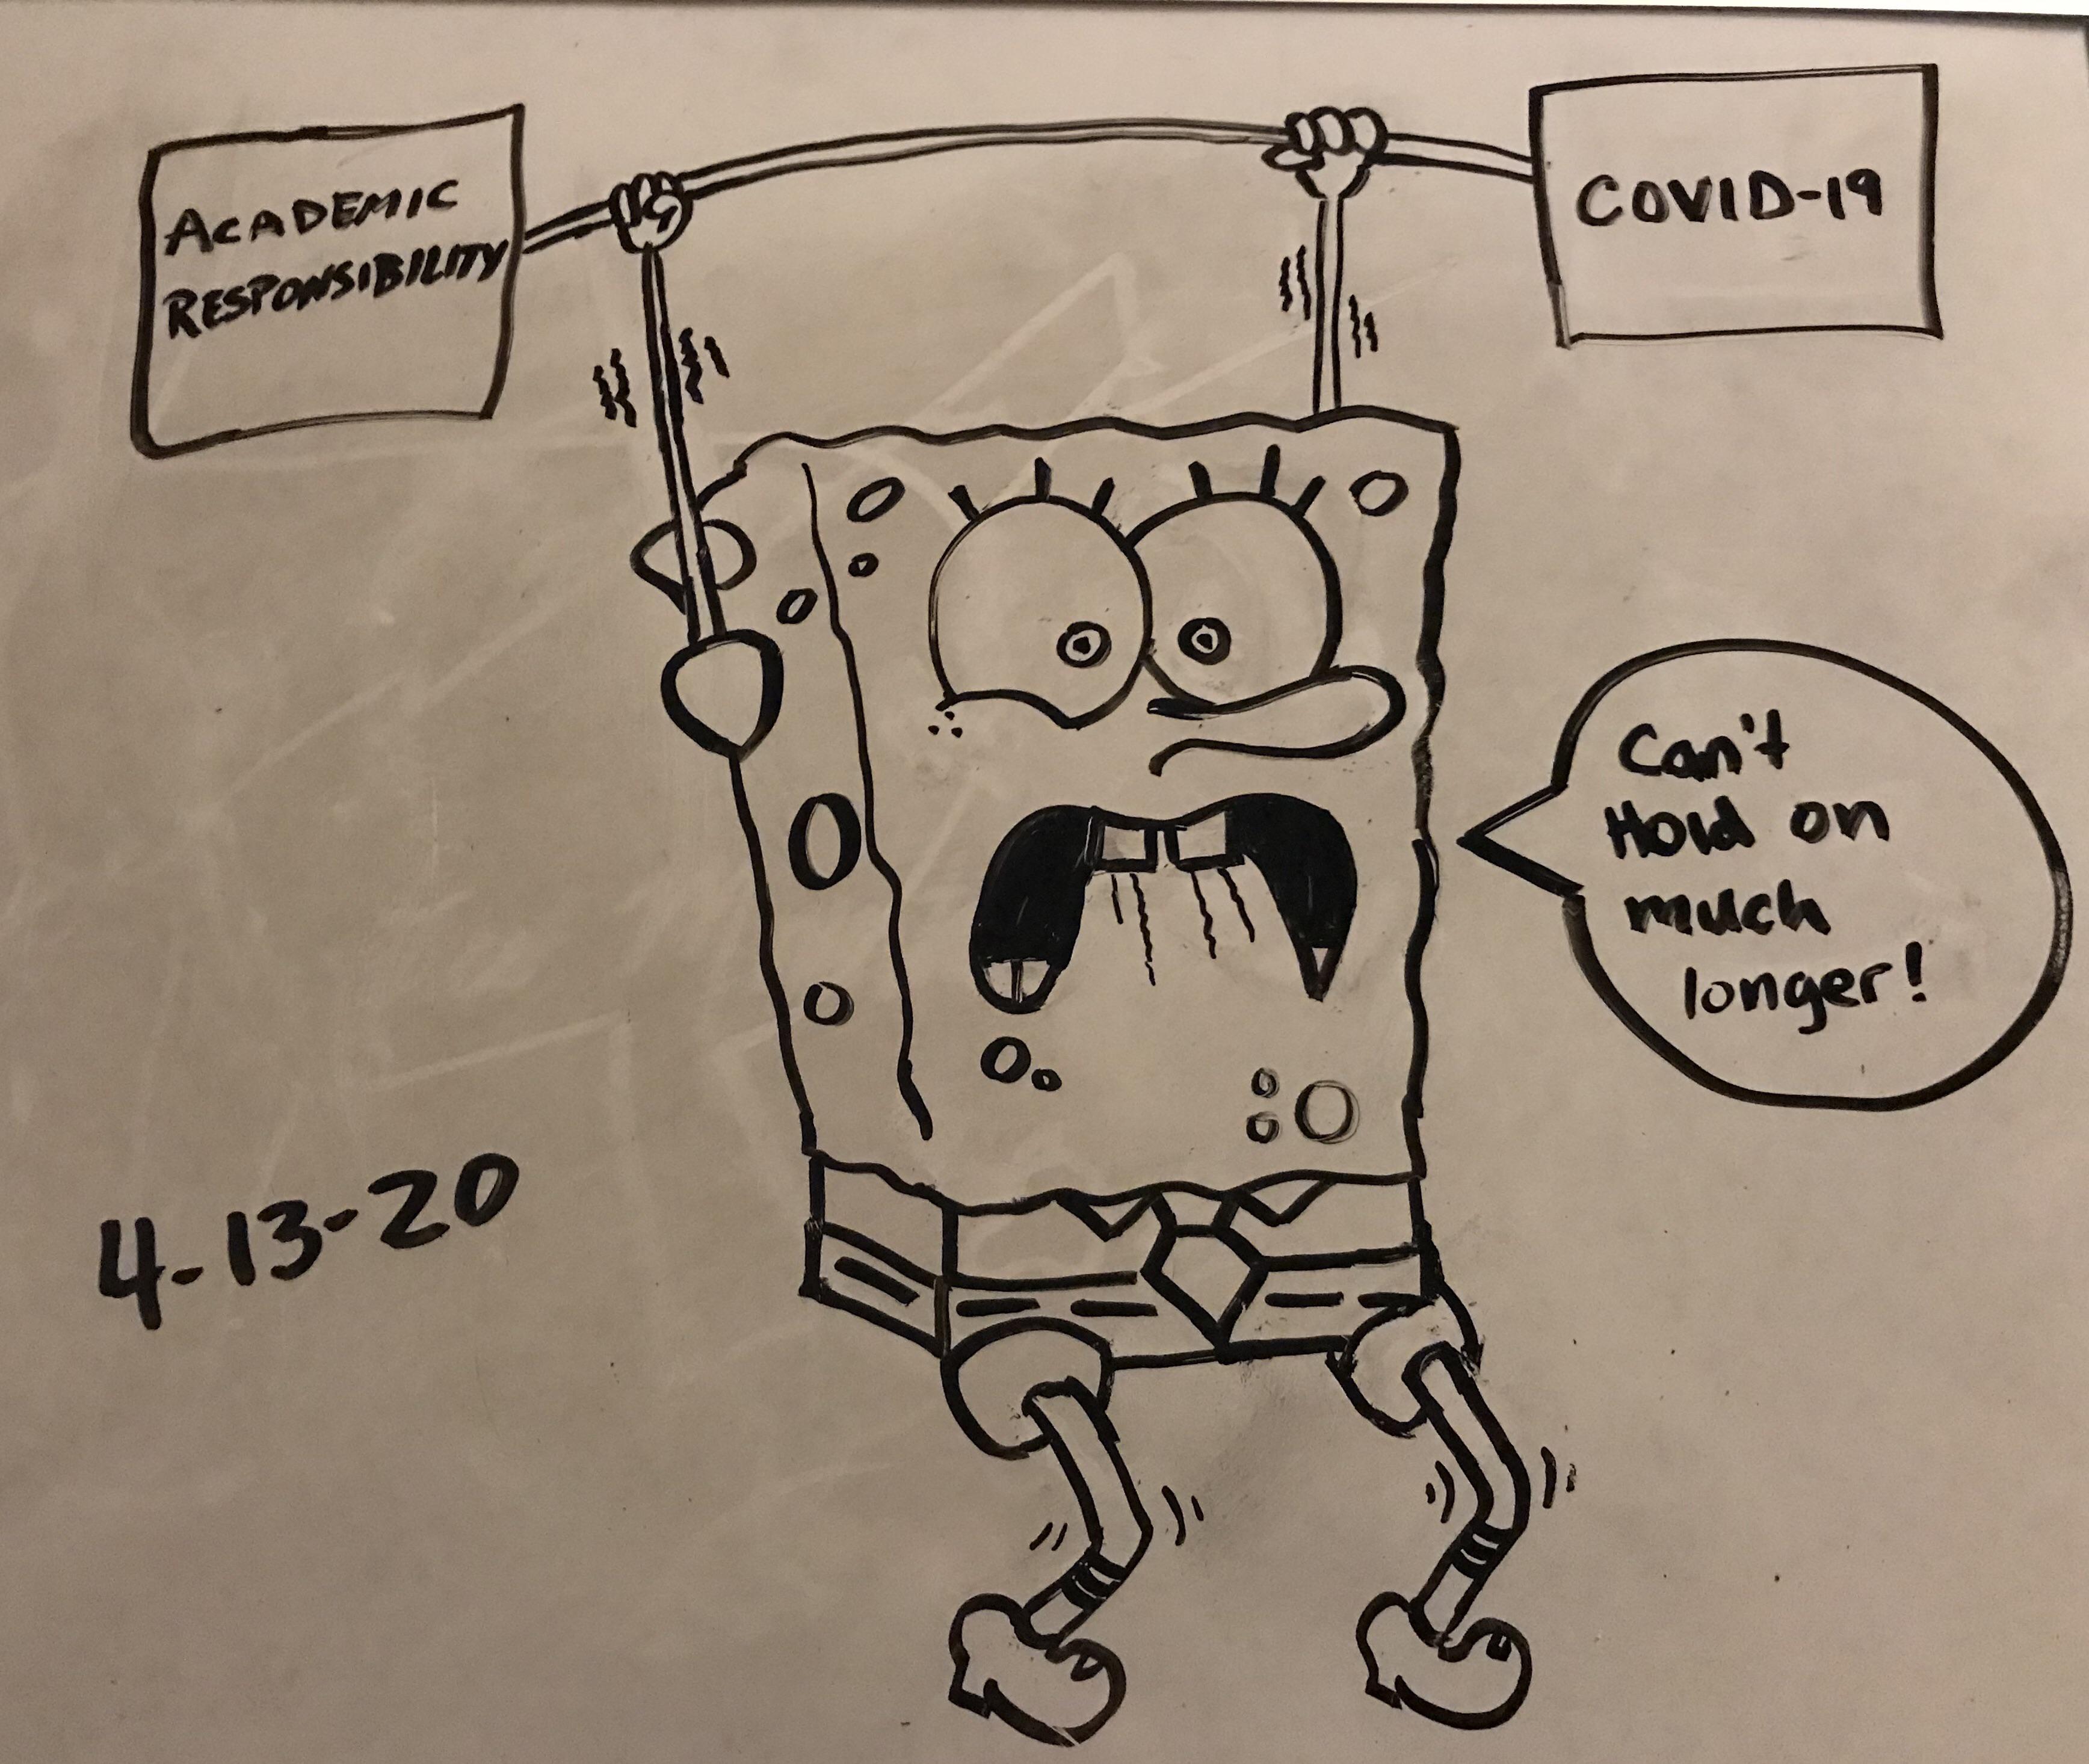 ACADEMIC
RESPONSIBILITY
COVID-19
Can't
Hold on
much
longer!
4-13-20